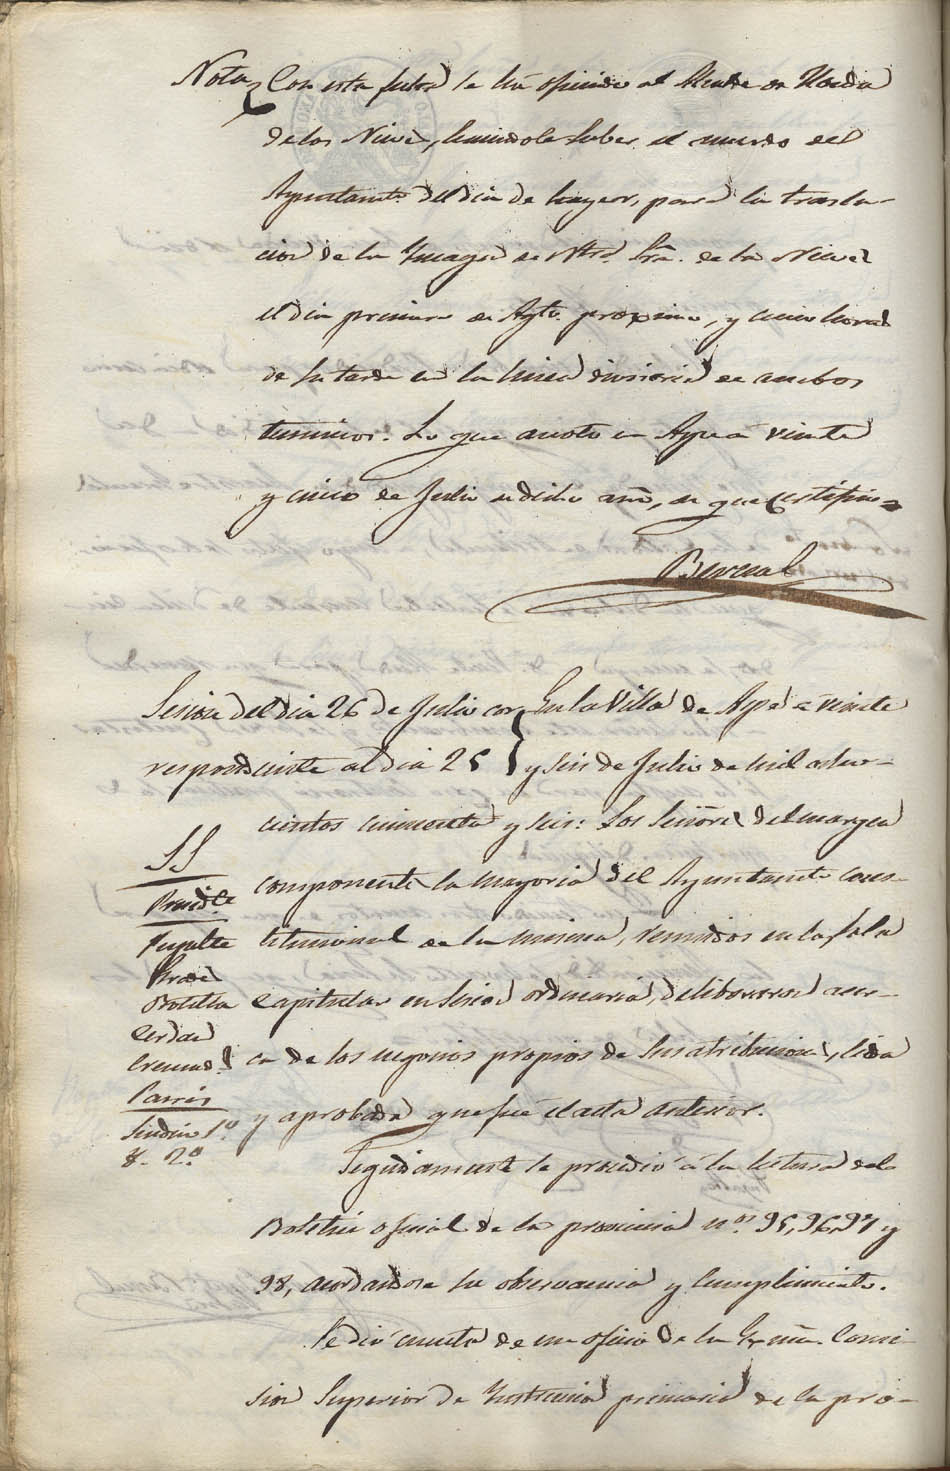 Nota} Con esta fecha se há oficiado al Alcalde de Hondon
de las Nieves, haciendole saber el acuerdo del
Ayuntamto. del dia de hayer, para la trasla-
cion de la Ymagen de Ntra. Sra. de las Nieves
el dia primero de Agto. proximo, y cinco horas
de su tarde en la linea divisoria de ambos
terminos. Lo que anoto en Aspe á veinte
y cinco de Julio de dicho año, de que certifico=
Bernal
Sesion del dia 26 de Julio cor-
respondiente al dia 25
En la Villa de Aspe á veinte
y seis de Julio de mil ocho-
cientos cincuenta y seis: Los Señores del margen
componentes la mayoria del Ayuntamto. cons-
titucional de la misma, reunidos en la sala
capitular en sesion ordinaria, deliberaron acer-
ca de los negocios propios de sus atribuciones, leida
y aprobada que fué el acta anterior.
SS
Presidte.
Pujalte
Prades
Botella
Cerdan
Cremads.
Carrés
Sindico 1º
Y. 2º
Seguidamente se procedió á la lectura del
Boletin oficial de la provincia nos. 95, 96, 97 y
98, acordandose su observancia y cumplimiento.
Se dió cuenta de un oficio de la Exma. Comi-
sion Superior de Ynstruccion primaria de la pro-